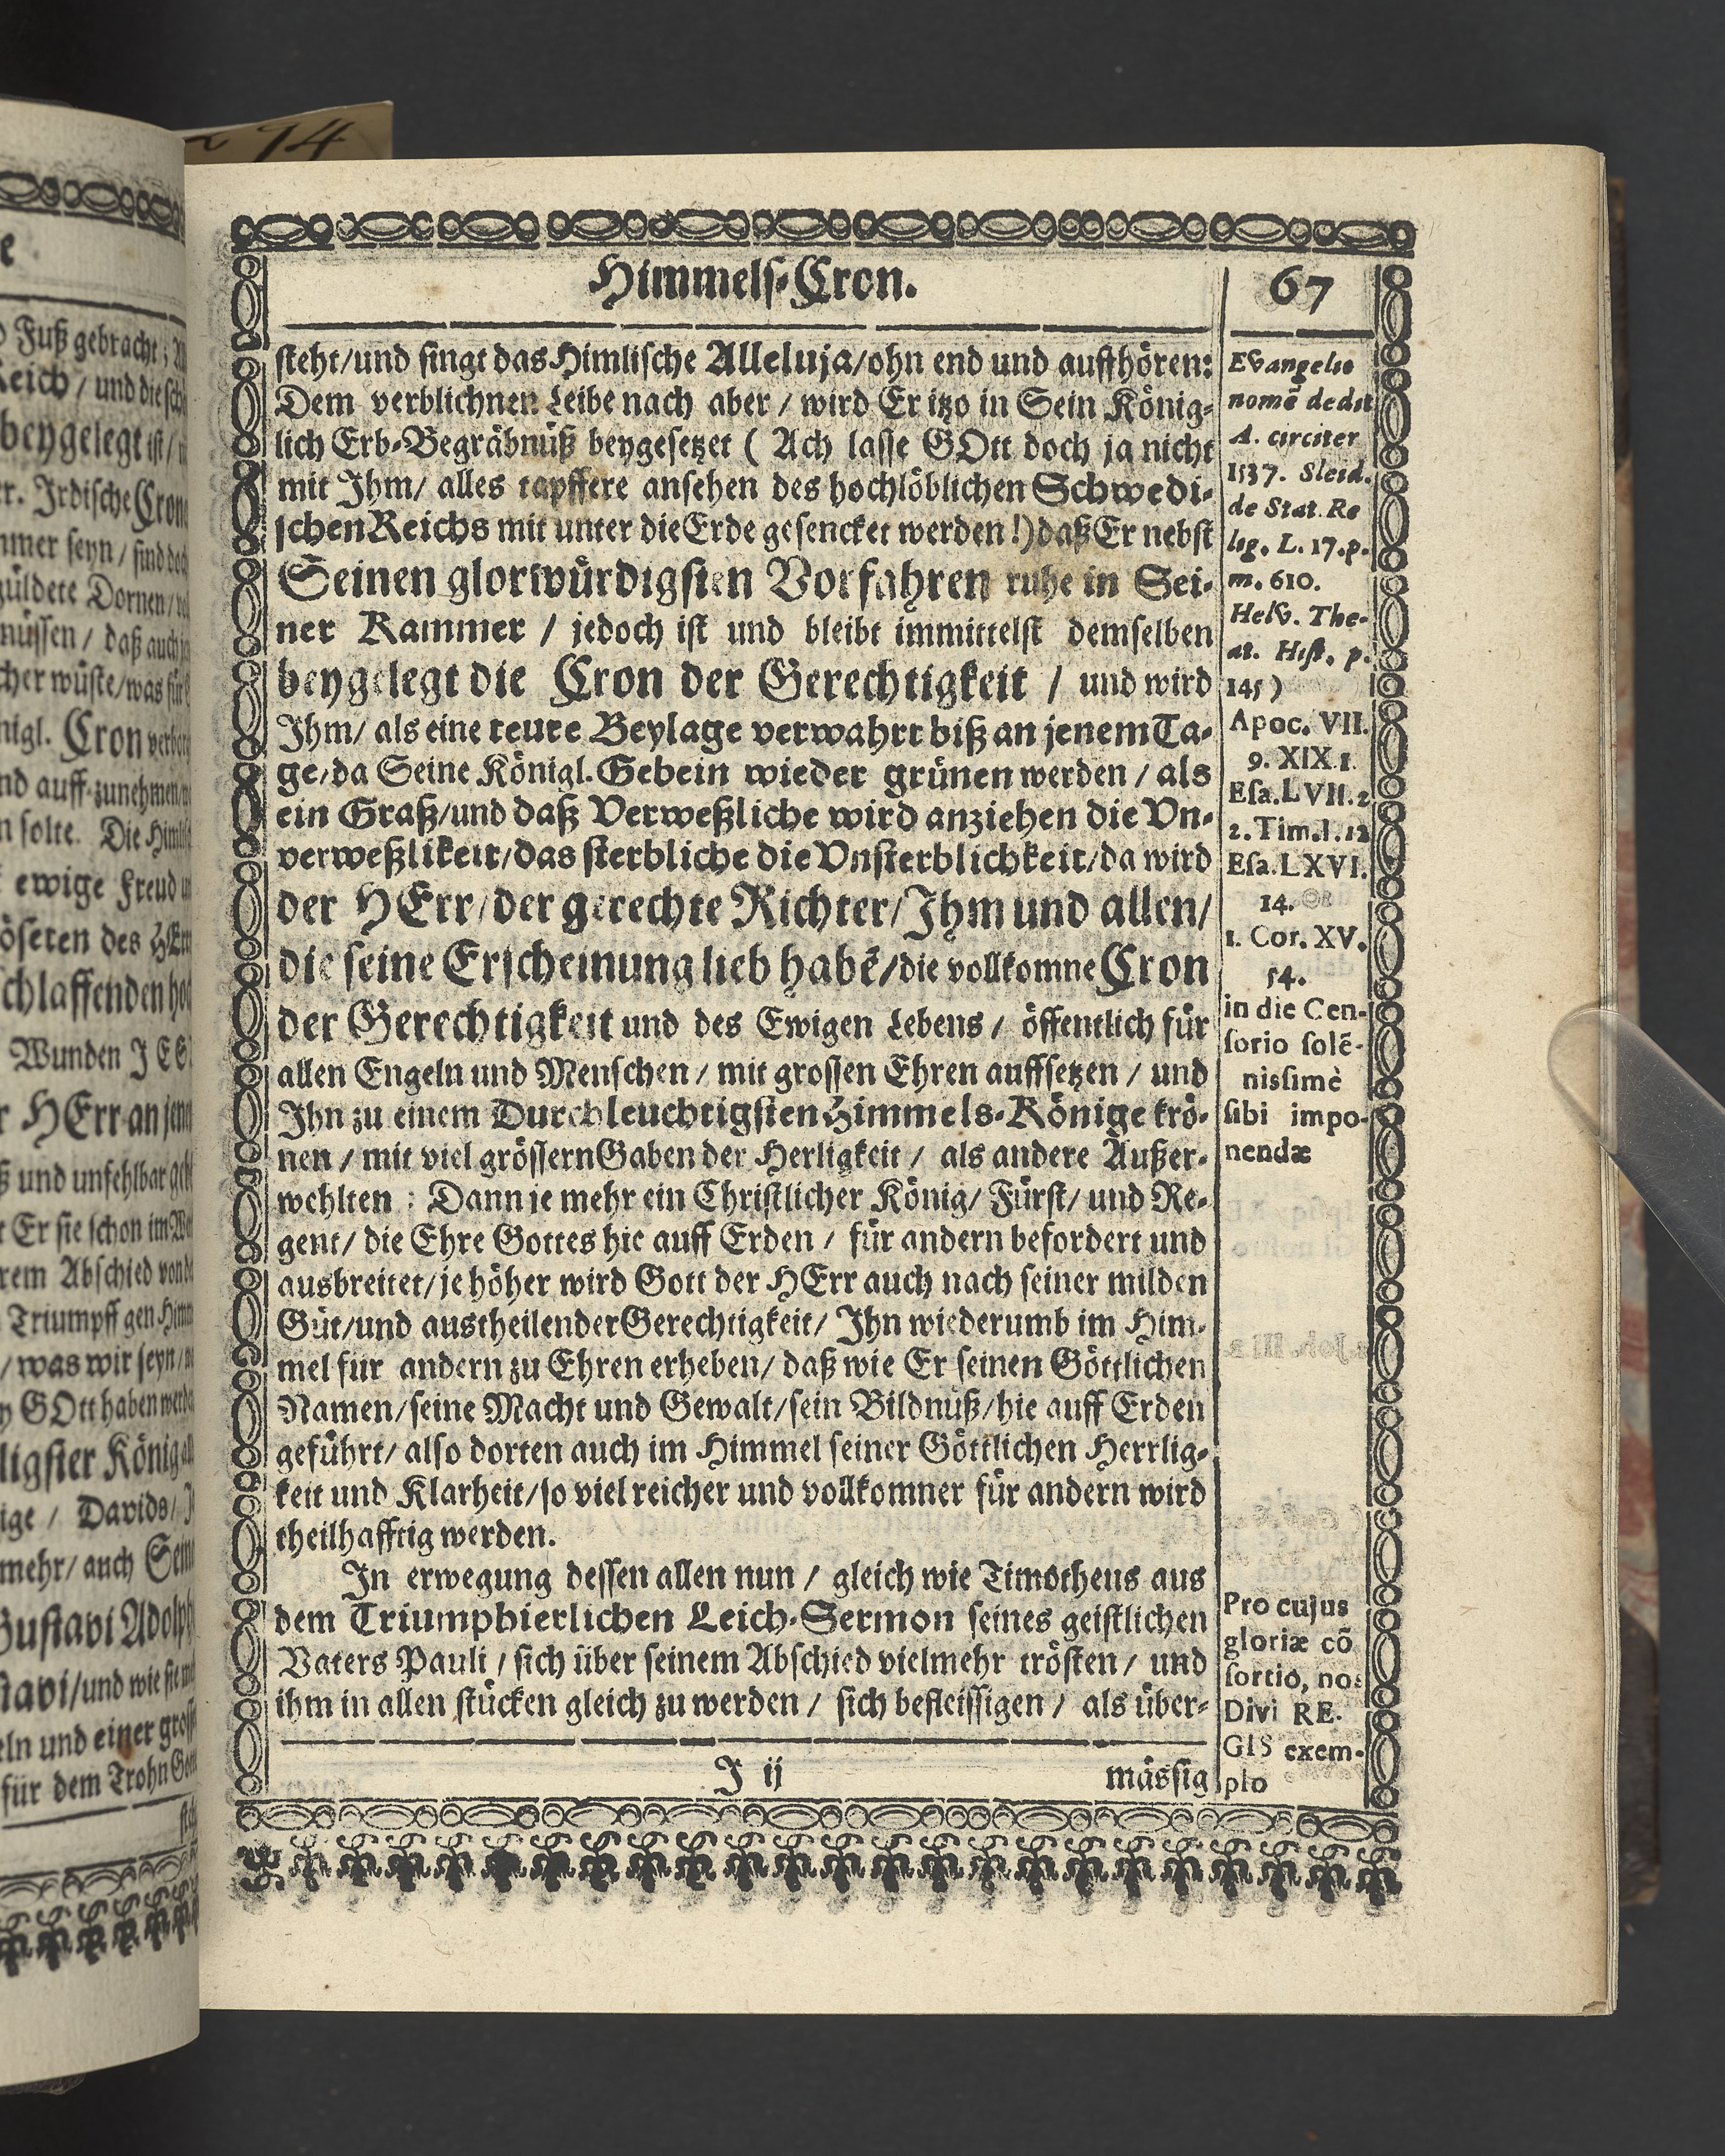 Himmels-Cron.
67
steht/und singt das Himlische Alleluja/ohn end und auffhören:
Dem verblichnen Leibe nach aber / wird Er itzo in Sein König-
lich Erb-Begräbnüß beygesetzet ( Ach lasse GOtt doch ja nicht
mit Ihm/ alles tapffere ansehen des hochlöblichen Schwedi-
schen Reichs mit unter die Erde gesencket werden!) daß Er nebst
Seinen glorwürdigsten Vorfahren ruhe in Sei-
ner Kammer / jedoch ist und bleibt immittelst demselben
beygelegt die Cron der Gerechtigkeit / und wird
Ihm/ als eine teure Beylage verwahrt biß an jenem Ta-
ge/da Seine Königl. Gebein wieder grünen werden / als
ein Graß/und daß Verweßliche wird anziehen die Vn-
verweßlikeit/das sterbliche die Vnsterblichkeit/da wird
der HErr/der gerechte Richter/Ihm und allen/
die seine Erscheinung lieb habē/die vollkomne Cron
der Gerechtigkeit und des Ewigen Lebens / öffentlich für
allen Engeln und Menschen / mit grossen Ehren auffsetzen / und
Ihn zu einem Durchleuchtigsten Himmels-Könige krö-
nen / mit viel grössern Gaben der Herligkeit / als andere Außer-
wehlten : Dann je mehr ein Christlicher König/ Fürst/ und Re-
gent/ die Ehre Gottes hie auff Erden / für andern befordert und
ausbreitet/je höher wird Gott der HErr auch nach seiner milden
Güt/und austheilender Gerechtigkeit/ Ihn wiederumb im Him-
mel für andern zu Ehren erheben/ daß wie Er seinen Göttlichen
Namen/seine Macht und Gewalt/sein Bildnüß/hie auff Erden
geführt/ also dorten auch im Himmel seiner Göttlichen Herrlig-
keit und Klarheit/so viel reicher und vollkomner für andern wird
theilhafftig werden.
In erwegung dessen allen nun / gleich wie Timotheus aus
dem Triumphierlichen Leich-Sermon seines geistlichen
Vaters Pauli / sich über seinem Abschied vielmehr trösten / und
ihm in allen stücken gleich zu werden / sich befleissigen / als über-
J ij
mässig
Evangelio
nomē dedit
A. circiter
1537. Sleid.
de Stat. Re
lig. L. 17. p.
m. 610.
Helv. The-
at. Hist. p.
145)
Apoc. VII.
9. XIX 1.
Esa. LVII. 2
2. Tim. I. 12
Esa. LXVI.
14.
1. Cor. XV.
54.
in die Cen-
sorio solē-
nissimè
sibi impo-
nendæ
Pro cujus
gloriæ cō
sortio, nos
Divi RE-
GIS exem-
plo
74
Fuß gebracht;
Reich / und die
beygelegt ist/
Irdische Cron
immer seyn / sind
güldete Dornen/
müssen / daß auch
wüste/was für
Cron
auff-zunehmen
solte. Die
ewige Freud
des HErrn
schlaffenden
Wunden JES
HErr an
und unfehlbar
Er sie schon im
Abschied von
Triumpff gen
/was wir seyn/
GOtt haben
König
/ Davids/
mehr/ auch
Gustavi Adolph
/und wie sie
und einer
für dem Trohn